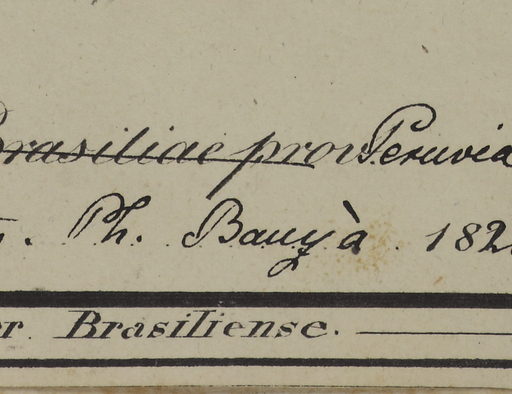 Brasiliae prov. Peruvia
Ph. Bauzà 182
r Brasiliense.